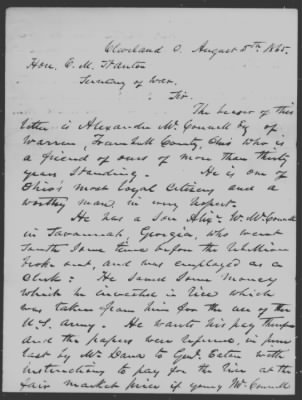 Cleveland O. August 5th 1865.
Hon. E. M. Stanton
Secretary of War,
Sir.
The bearer of this
letter is Alexander McConnell Esq of
Warren, Trumbull County, Ohio who is
a friend of ours of more than thirty
years standing. He is one of
Ohio's most loyal citizens and a
worthy man, in every respect.
He has a son Alexr. W. McConnell
in Savannah, Georgia, who went
South some time before the rebellion
broke out, and was employed as a
Clerk. He saved some money
which he invested in rice which
was taken from him for the use of the
U.S. army. He wants his pay therefor
and the papers were referred, in June
last by Mr Dana to Genl. Eaton with
instructions to pay for the rice at the
fair market price if young McConnell